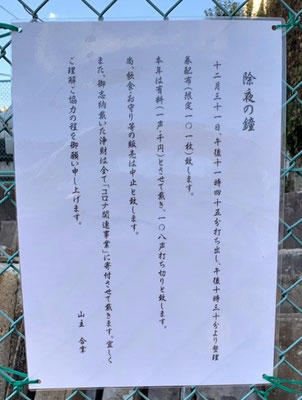 除夜の鐘
十二月三十一日、午後十一時四十五分打ち出し、午後十時三十分より整理
券配布(限定一〇一枚)致します。
本年は有料(一声・千円)とさせて戴き、一〇八声打ち切りと致します。
尚、飲食・お守り等の販売は中止と致します。
また、御志納戴いた浄財は全て「コロナ関連事業」に寄付させて戴きます。宜しく
ご理解ご協力の程を御願い申し上げます。
山主 合掌